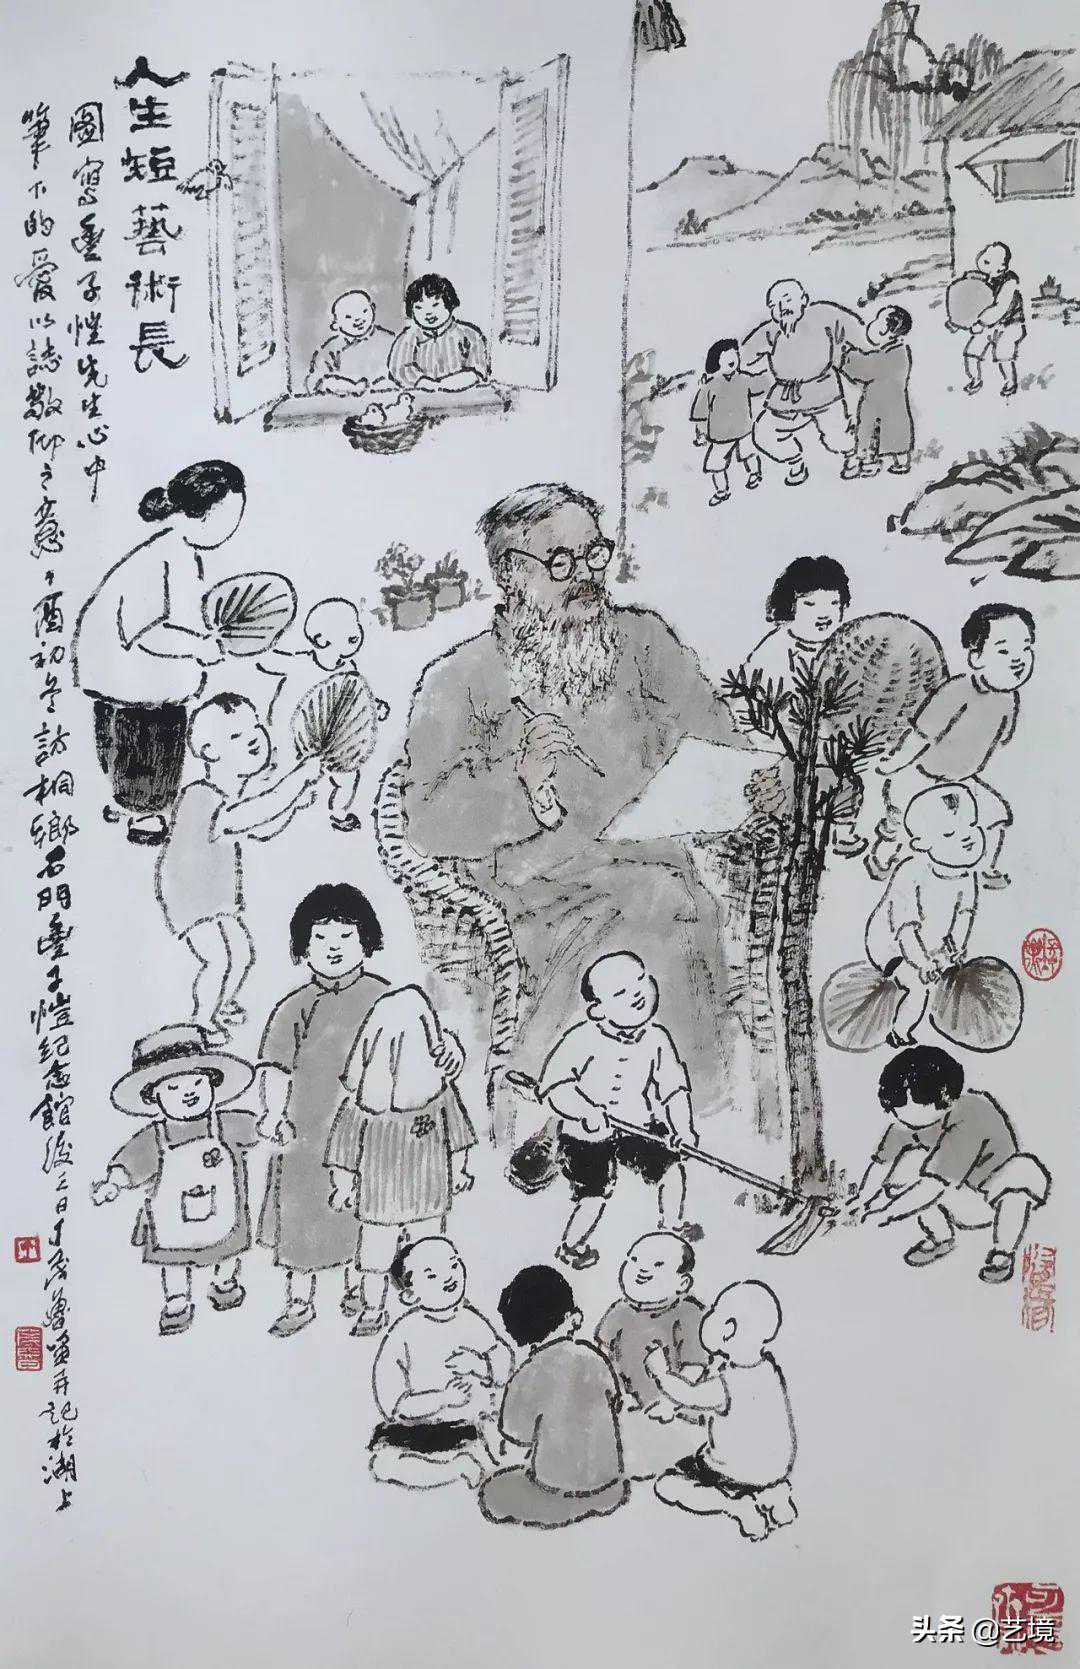 人生短藝術長
圖寫豐子愷先生心中
筆下的愛以誌敬仰之意丁酉初冬訪桐鄉石門豐子愷紀念館後二日丁茂魯畫并記於湖上
头条 @艺境